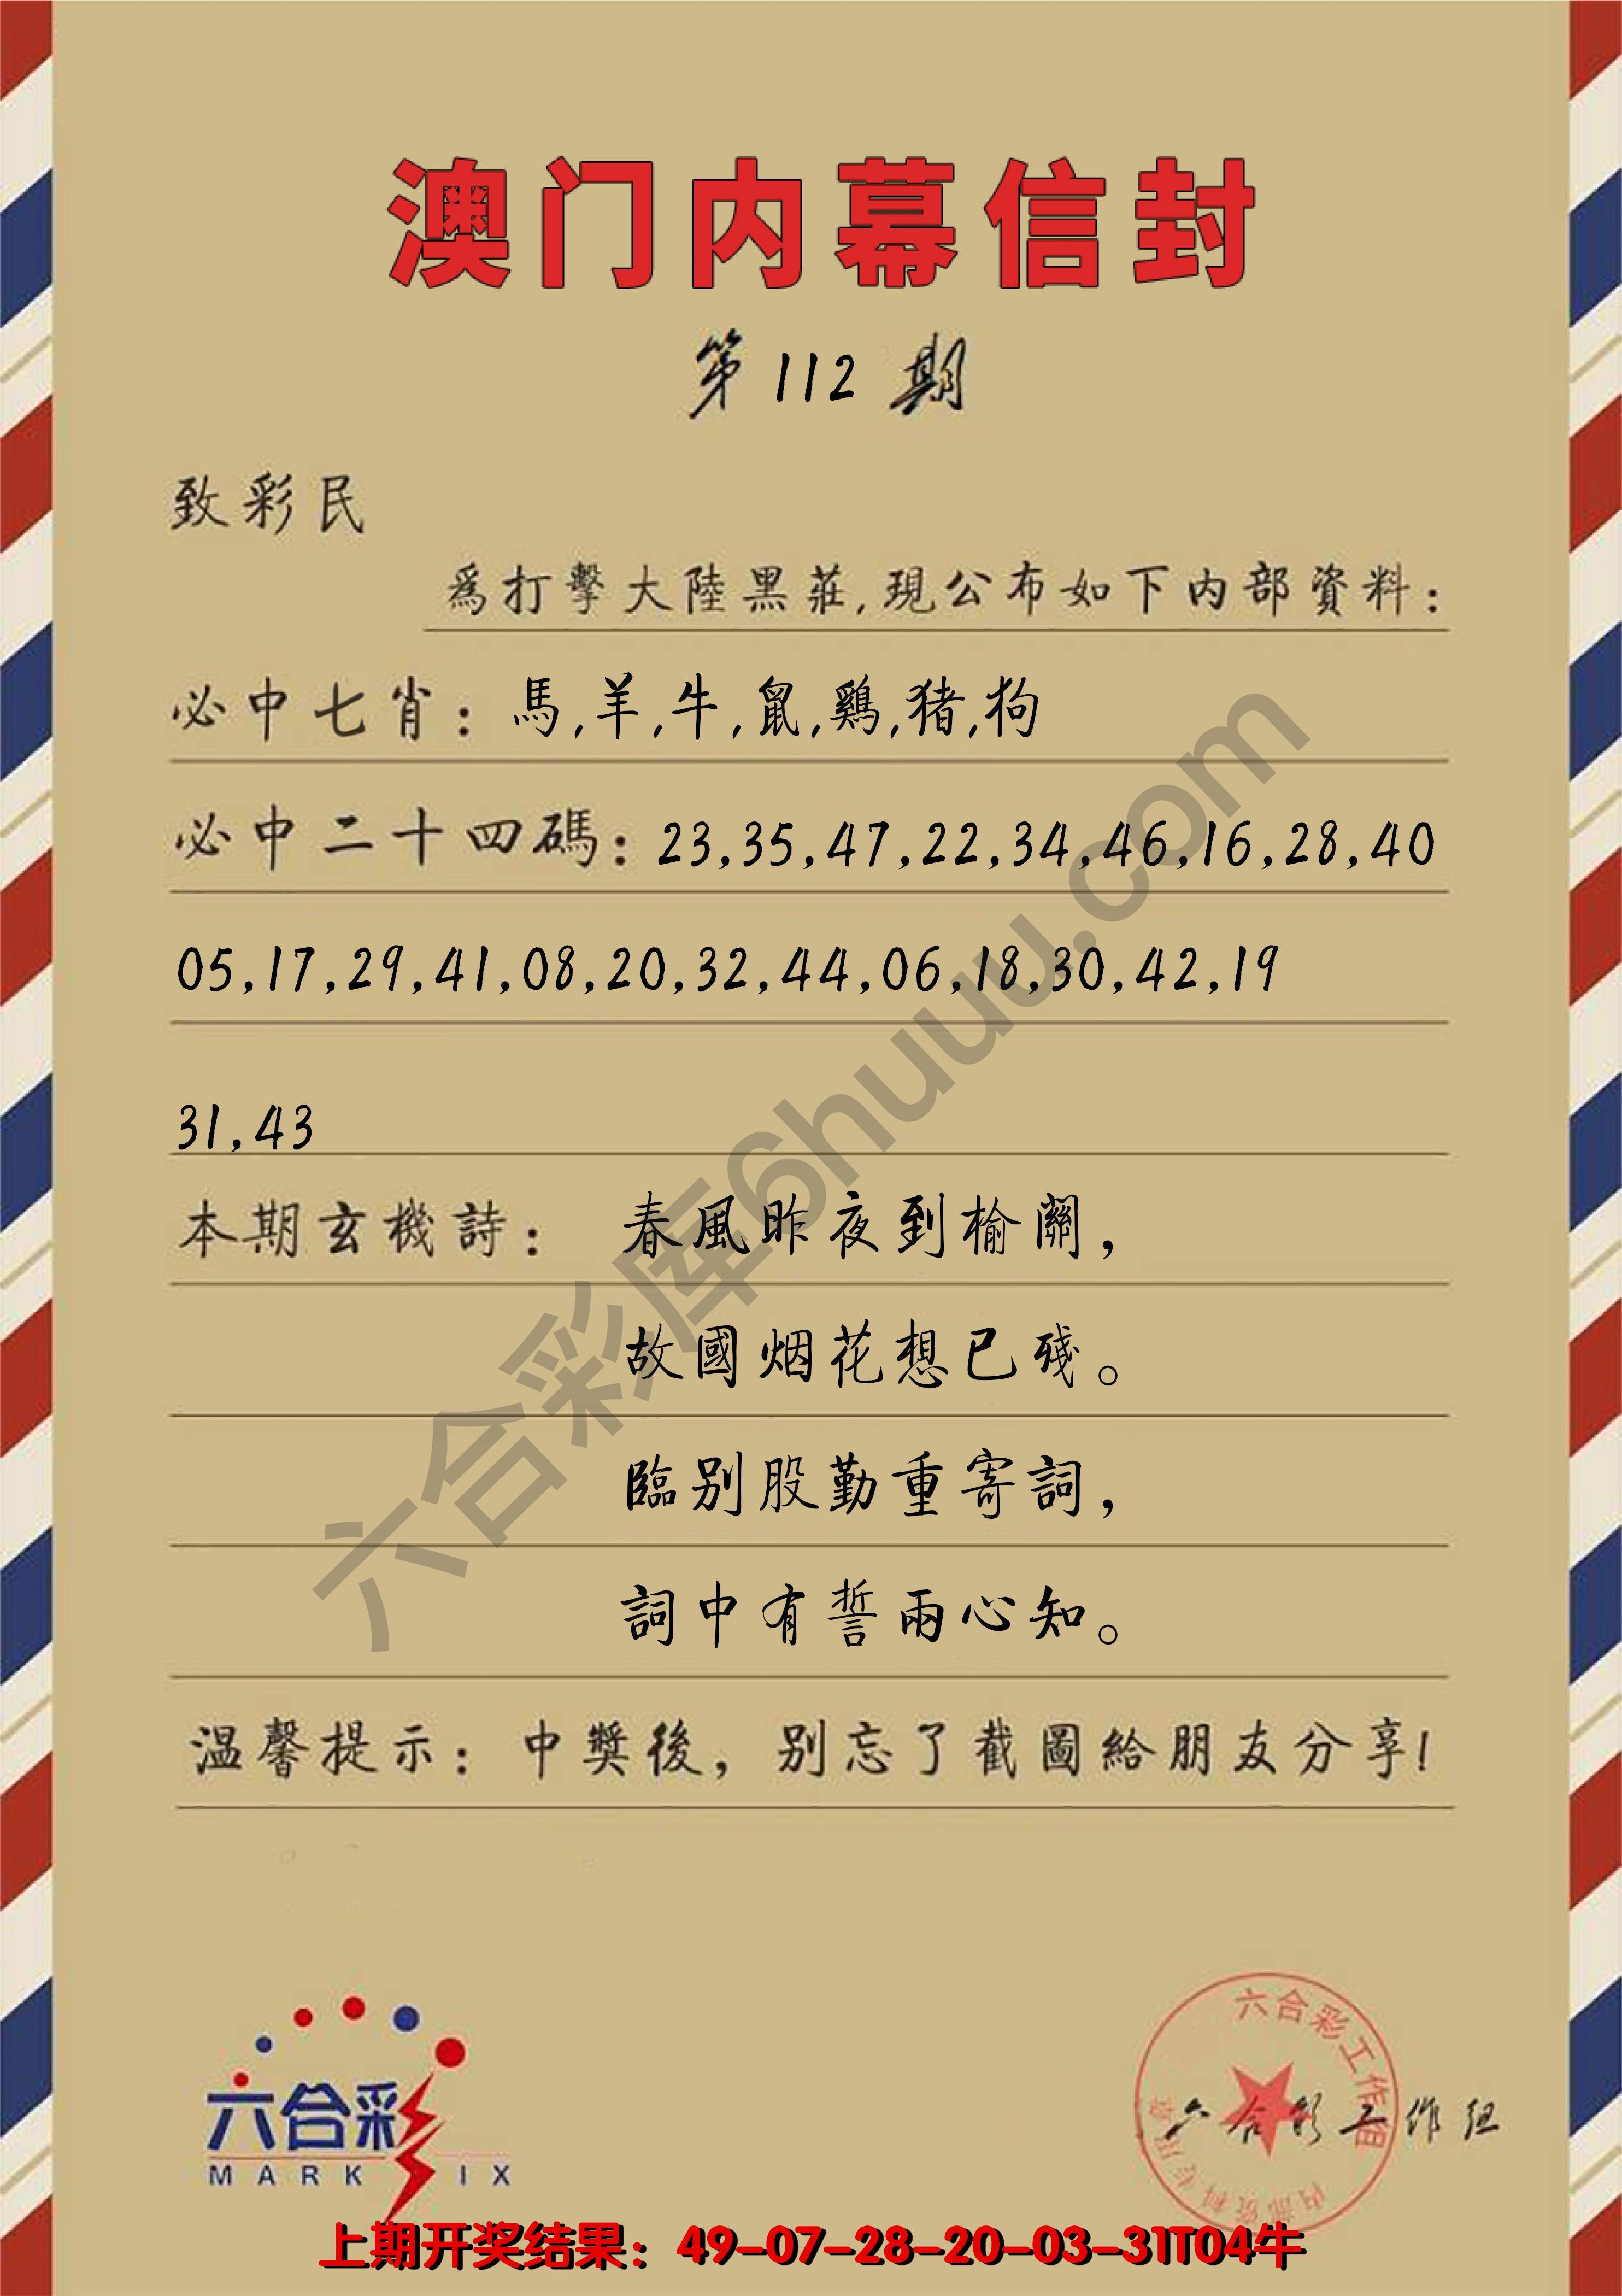 澳门内幕信封
第112期
致彩民
爲打擊大陸黑莊,現公布如下内部資料:
必中七肖: 馬,羊,牛,鼠,鷄,猪,狗
必中二十四碼: 23,35,47,22,34,46,16,28,40
05,17,29,41,08,20,32,44,06,18,30,42,19
31,43
本期玄機詩: 春風昨夜到榆關,
故國烟花想已殘。
臨别股勤重寄詞,
詞中有誓兩心知。
温馨提示: 中獎後, 别忘了截圖給朋友分享!
六合彩库6huuu.com
六合彩
MARK IX
六合彩工作组
内部资料专用章
六合彩工作组
上期开奖结果: 49-07-28-20-03-31T04牛